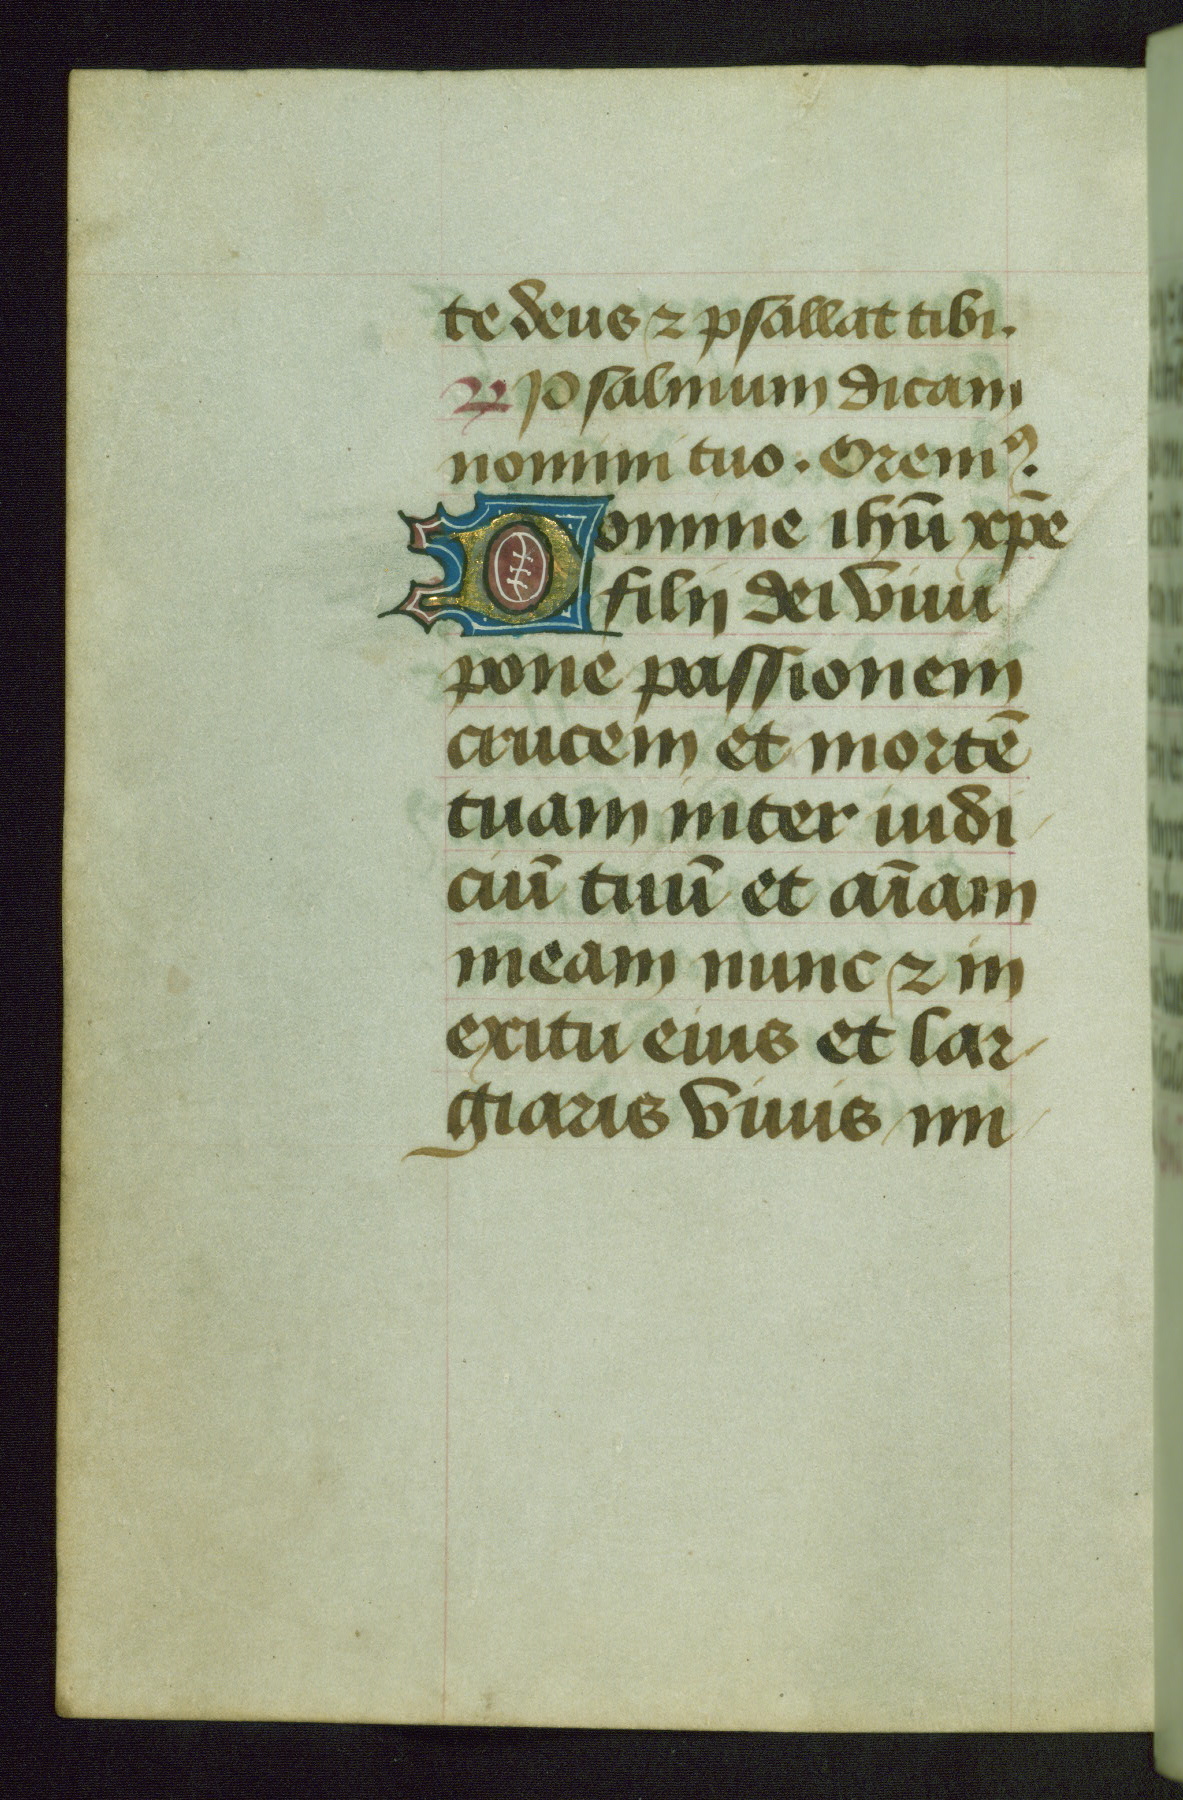 te deus ⁊ psallat tibi.
℟ Psalmum dicam
nomini tuo. Oremꝰ.
Domine ihū xp̄e
filij dei viui
pone passionem
crucem et mortē
tuam inter iudi
ciū tuū et aīam
meam nunc ⁊ in
exitu eius et lar
giaris viuis mi